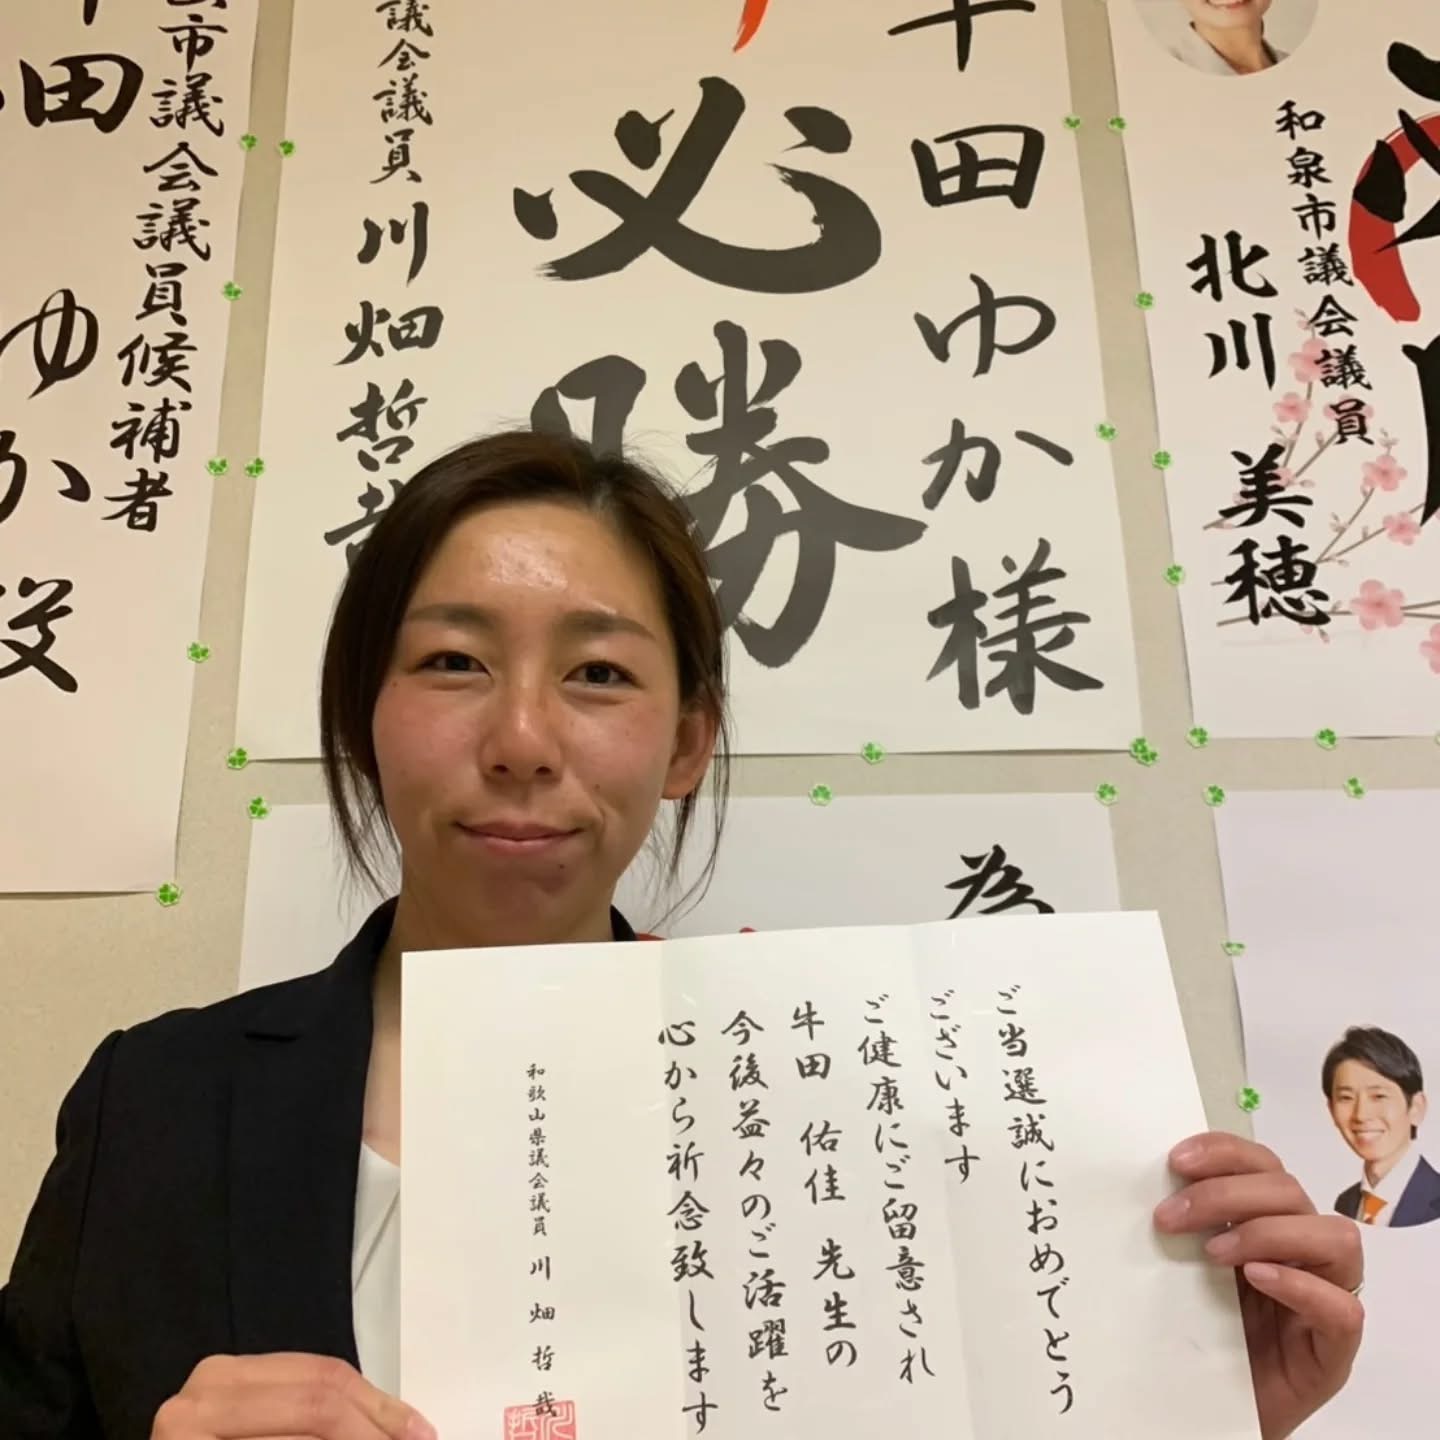 ご当選誠におめでとう
ございます
ご健康にご留意され
牛田 佑佳 先生の
今後益々のご活躍を
心から祈念致します
和歌山県議会議員 川畑哲哉
牛田ゆか様
必勝
議会議員 川畑哲哉
和泉市議会議員
北川 美穂
市議会議員候補者
田ゆか殿
為